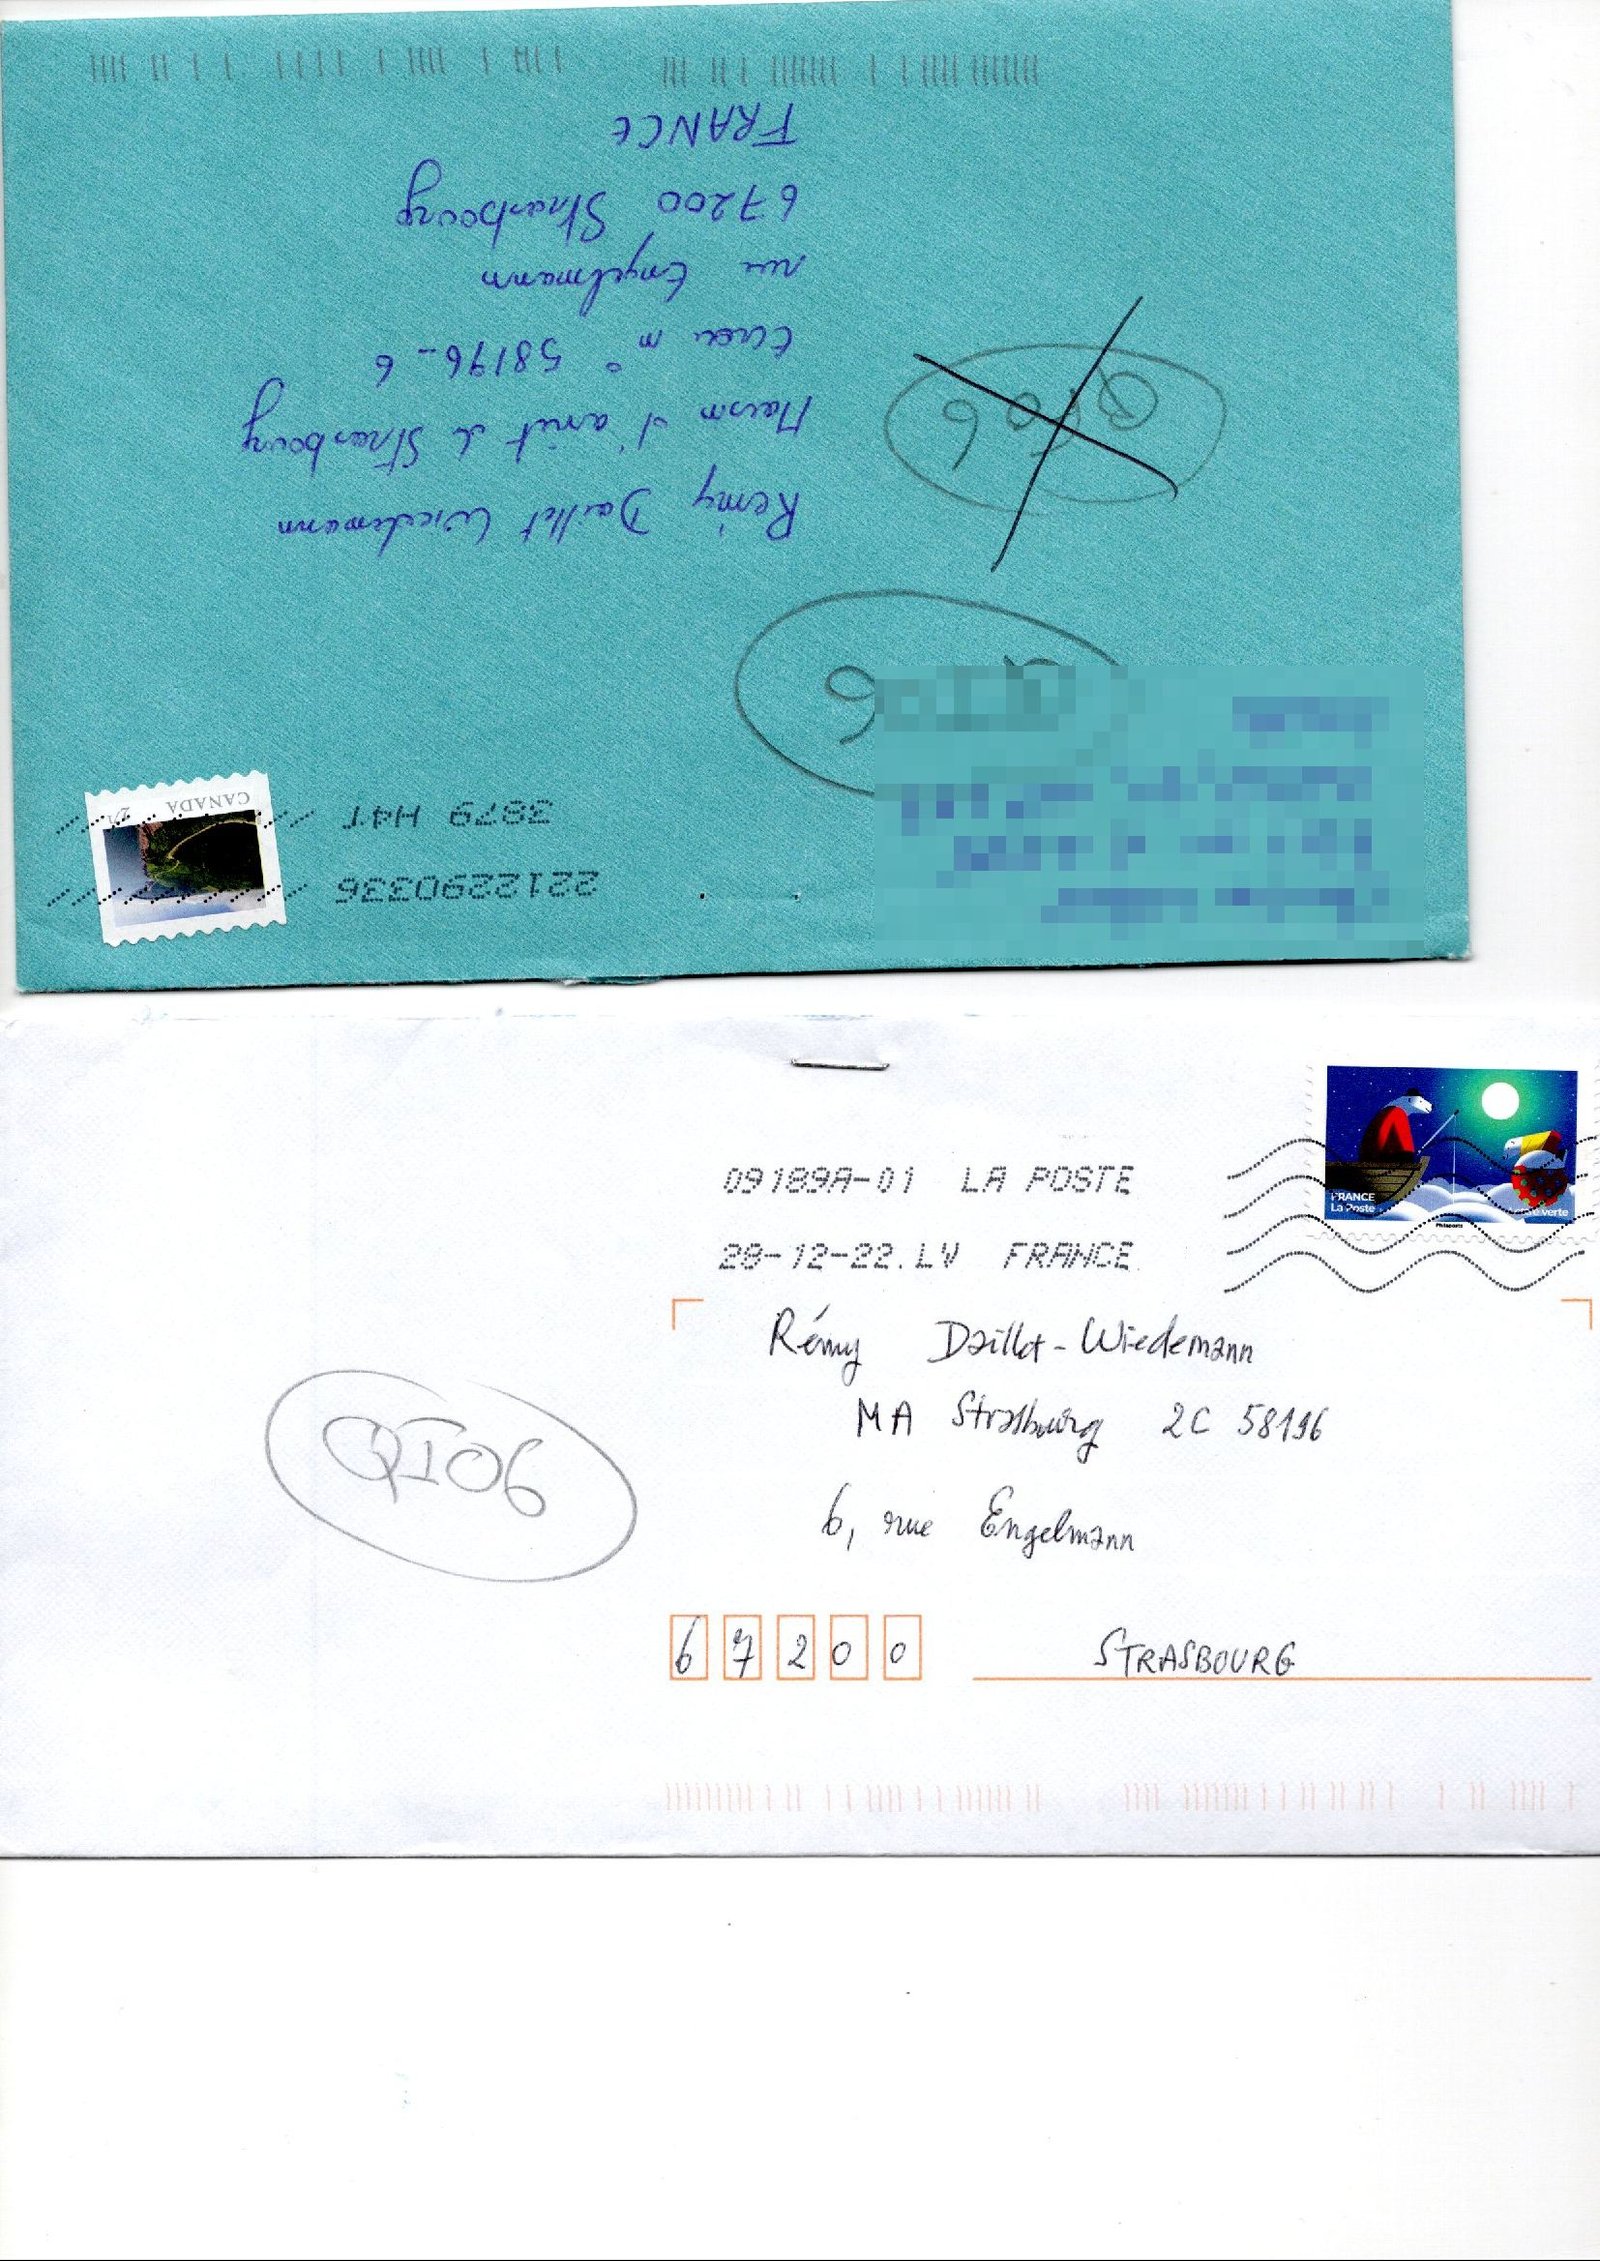 CANADA
2212290336
3879 H4T
Rémy Daillet Wiedemann
Maison d'arrêt de Strasbourg
Ecrou n° 58196 - 6
rue Engelmann
67200 Strasbourg
FRANCE
09189A-01 LA POSTE
28-12-22.LV FRANCE
FRANCE
La Poste
Philaposte
Rémy Daillet-Wiedemann
MA Strasbourg 2C 58196
6, rue Engelmann
QI06
67200 STRASBOURG